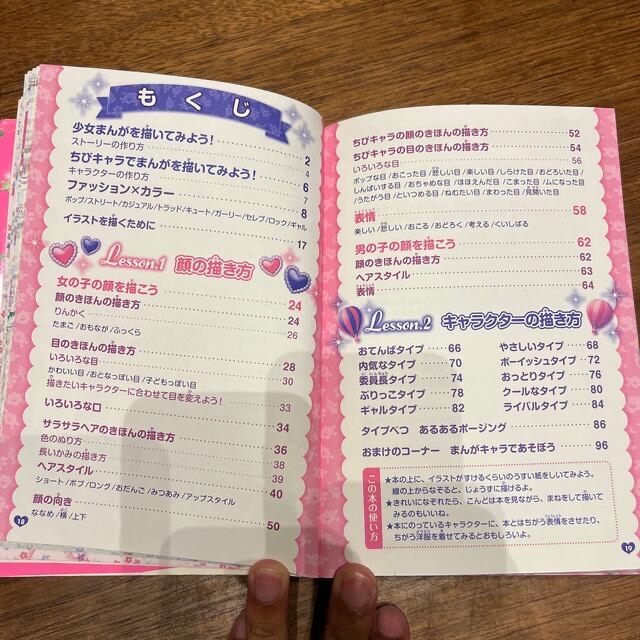 もくじ
少女まんがを描いてみよう! 2
ストーリーの作り方 4
ちびキャラでまんがを描いてみよう! 6
キャラクターの作り方 7
ファッション×カラー 8
ポップ/ストリート/カジュアル/トラッド/キュート/ガーリー/セレブ/ロック/ギャル
イラストを描くために 17
Lesson.1 顔の描き方
女の子の顔を描こう 24
顔のきほんの描き方 24
りんかく 26
たまご/おもなが/ふっくら
目のきほんの描き方 28
いろいろな目 30
かわいい目/おとなっぽい目/子どもっぽい目
描きたいキャラクターに合わせて目を変えよう! 33
いろいろな口 34
サラサラヘアのきほんの描き方 36
色のぬり方 38
長いかみの描き方 39
ヘアスタイル 40
ショート/ボブ/ロング/おだんご/みつあみ/アップスタイル
顔の向き 50
ななめ/横/上下
18
ちびキャラの顔のきほんの描き方 52
ちびキャラの目のきほんの描き方 54
いろいろな目 56
ポップな目/おこった目/悲しい目/楽しい目/しらけた目/おどろいた目/
しんぱいする目/おちゃめな目/ほほえんだ目/こまった目/ムになった目
/うたがう目/といつめる目/ねむたい目/まわった目/見開いた目
表情 58
楽しい/悲しい/おこる/おどろく/考える/くいしばる
男の子の顔を描こう 62
顔のきほんの描き方 62
ヘアスタイル 63
表情 64
Lesson.2 キャラクターの描き方
おてんばタイプ 66 やさしいタイプ 68
内気なタイプ 70 ボーイッシュタイプ 72
委員長タイプ 74 おっとりタイプ 76
ぶりっこタイプ 78 クールなタイプ 80
ギャルタイプ 82 ライバルタイプ 84
タイプべつ あるあるポージング 86
おまけのコーナー まんがキャラであそぼう 96
この本の使い方
★本の上に、イラストがすけるくらいのうすい紙をしいてみよう。
線の上からなぞると、じょうずに描けるよ。
★きれいになぞれたら、こんどは本を見ながら、まねをして描いて
みるのもいいね。
★本にのっているキャラクターに、本とはちがう表情をさせたり、
ちがう洋服を着せてみるとおもしろいよ。
19